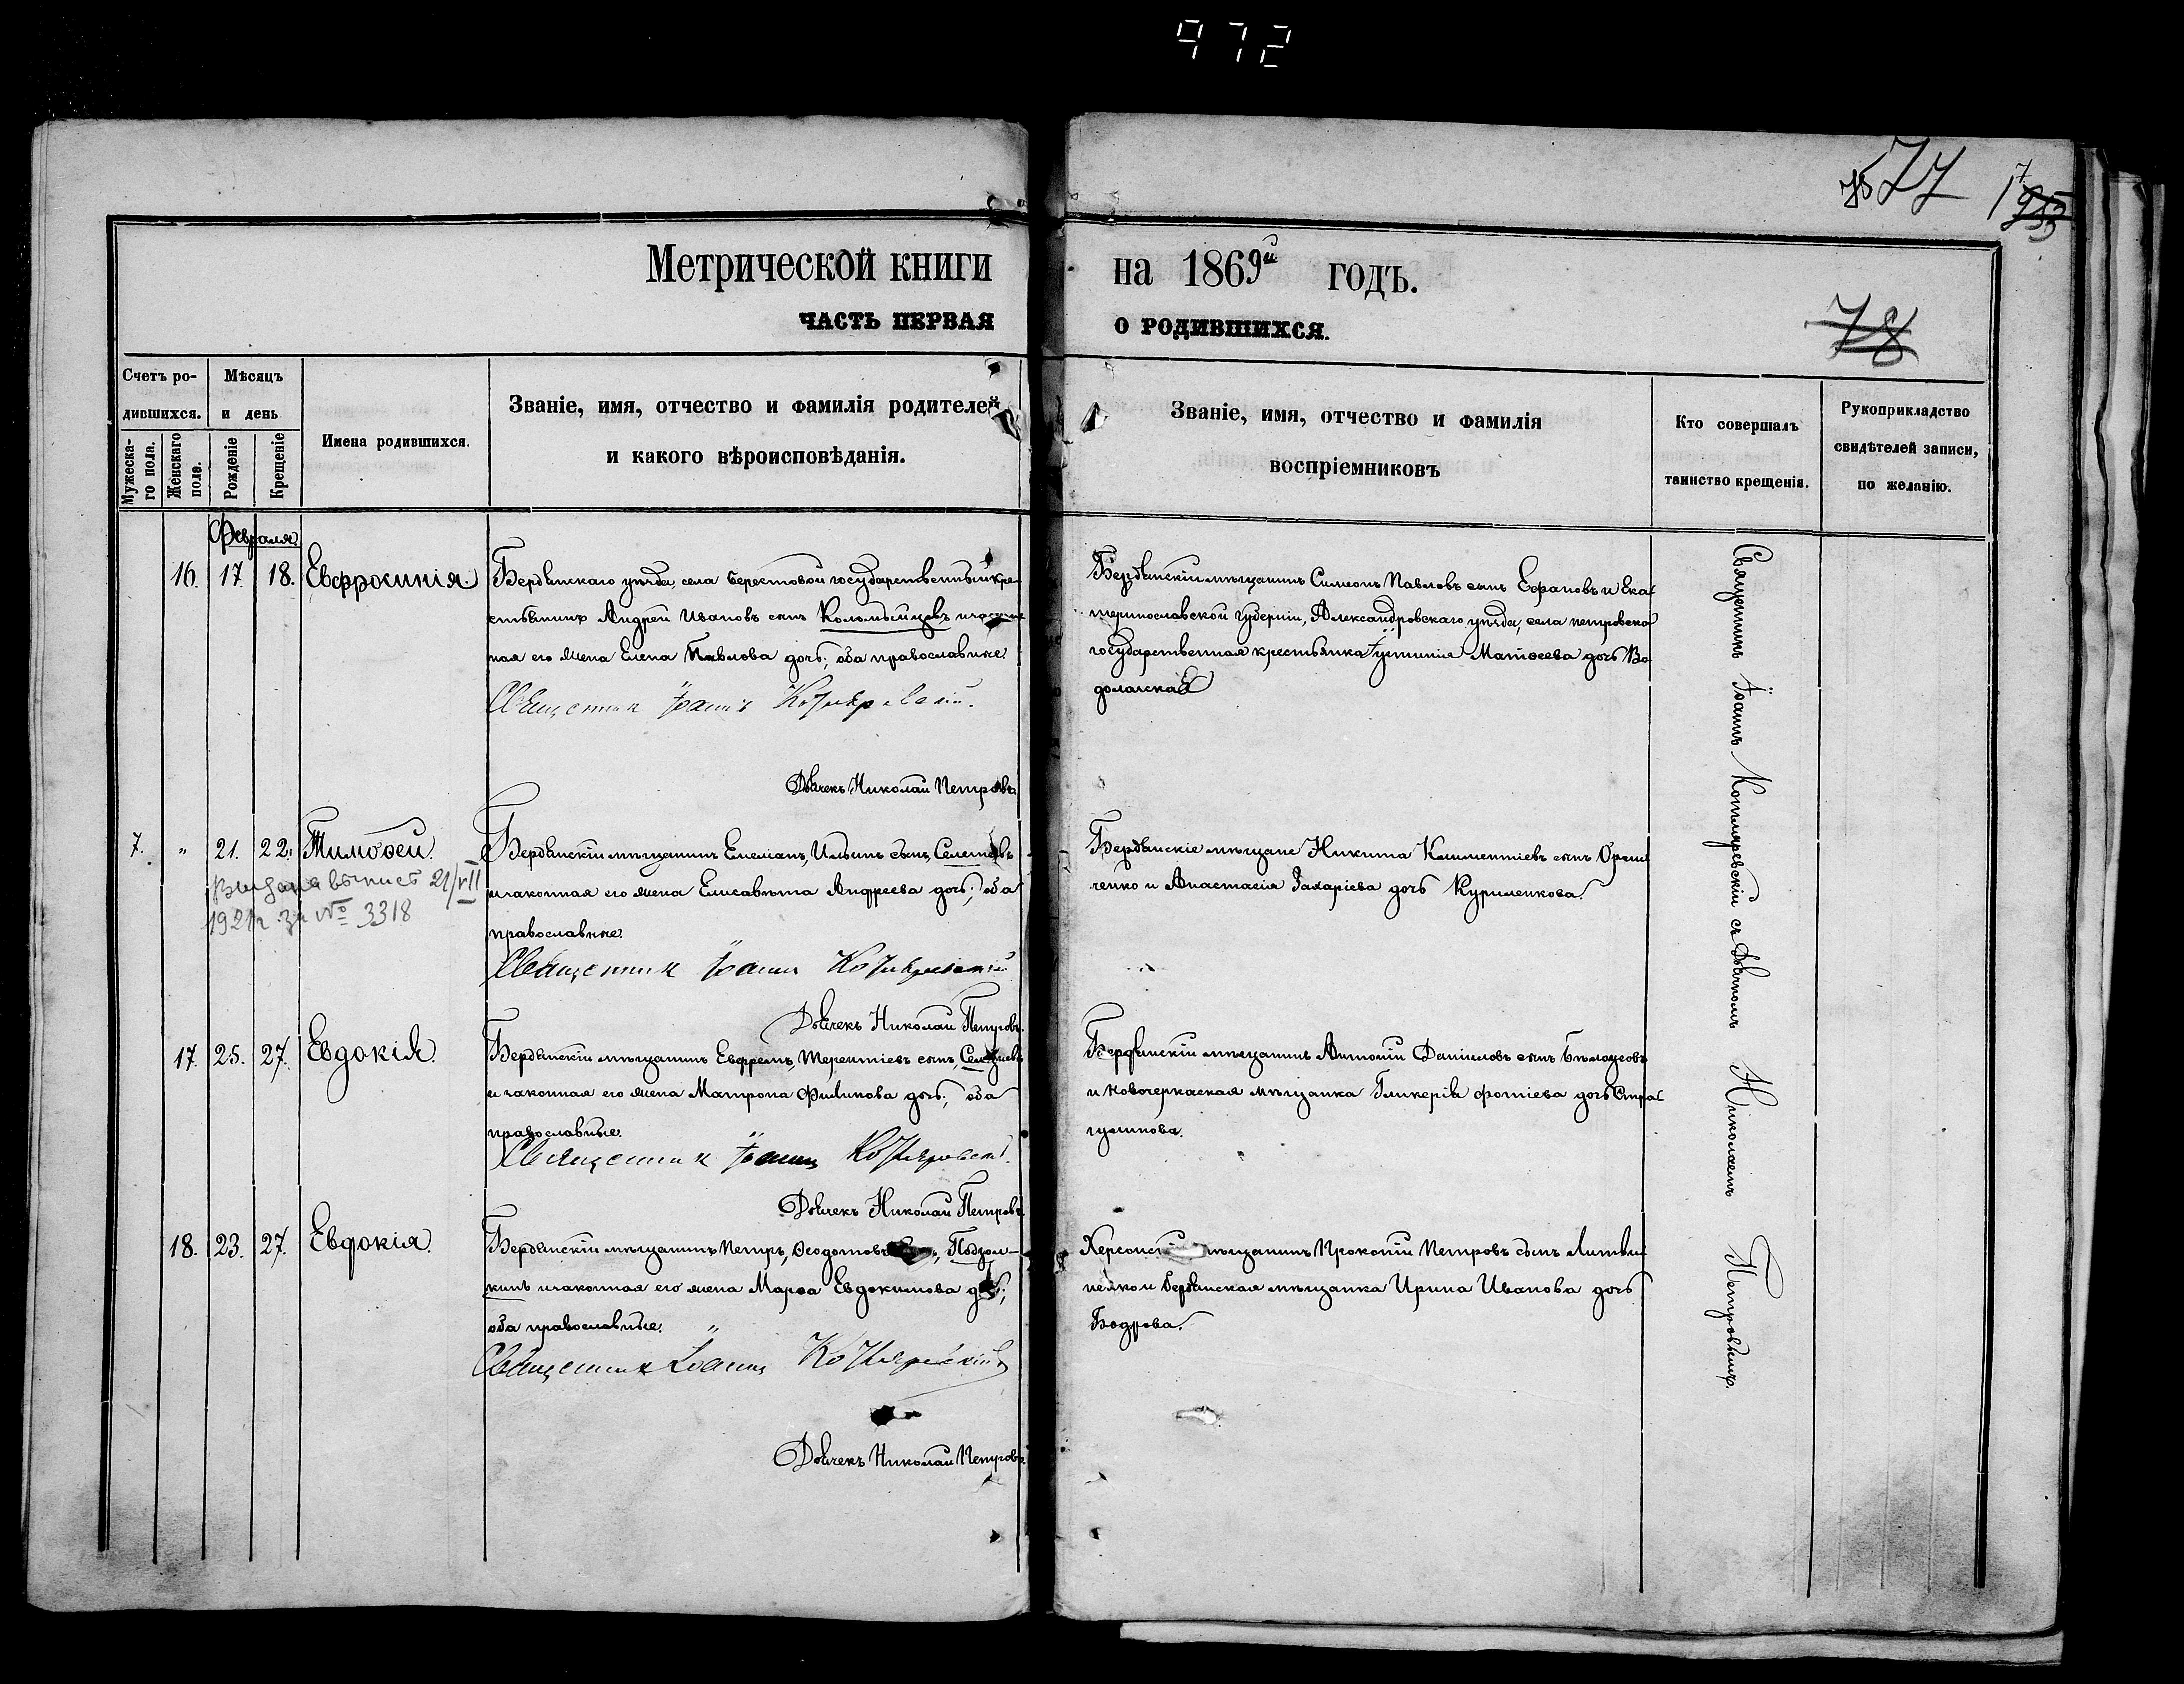 972
77
78
Метрической книги на 1869й годъ.
ЧАСТЬ ПЕРВАЯ О РОДИВШИХСЯ.
Счетъ ро-
дившихся.
Мужеска-
го пола.
Женскаго
пола.
Мѣсяцъ
и день
Рожденіе
Крещеніе
Имена родившихся.
Званіе, имя, отчество и фамилія родителей
и какого вѣроисповѣданія.
Званіе, имя, отчество и фамилія
воспріемниковъ
Кто совершалъ
таинство крещенія.
Рукоприкладство
свидѣтелей записи,
по желанію.
Февраля
16. 17. 18. Евфросинія.
Бердянскаго уѣзда, села Берестовой государственный кре-
стьянинъ Андрей Ивановъ сынъ Коломыйцевъ и закон
ная его жена Елена Павлова дочь; оба православные.
Священникъ Іоаннъ Котляревскій.
Дьячекъ Николай Петровъ
Бердянскій мѣщанинъ Симеонъ Павловъ сынъ Ефановъ и Ека-
теринославской губерніи, Александровскаго уѣзда, села петровска
государственная крестьянка Іустинія Матѳеева дочь Во-
долаская
7. " 21. 22. Тимоѳей.
Выдана выпись 21/VII
1921 г. за № 3318
Бердянскій мѣщанинъ Емеліанъ, Ильинъ сынъ,
и законная его жена Елисавета Андреева дочь; оба
православные.
Священникъ Іоаннъ Котляревскій
Дьячекъ Николай Петровъ.
Бердянскіе мѣщане Никита Климентіевъ сынъ
ченко и Анастасія Захаріева дочь Куриленкова.
17. 25. 27. Евдокія.
Бердянскій мѣщанинъ Евфремъ, Терентіевъ сынъ,
и законная его жена Матрона Филипова дочь; оба
православные.
Священникъ Іоаннъ Котляревскій.
Дьячекъ Николай Петровъ
Бердянскій мѣщанинъ Антоній Даниловъ сынъ Бѣлоусовъ
и Новочеркаская мѣщанка Гликерія Фотіева дочь Стра-
18. 23. 27. Евдокія.
Бердянскій мѣщанинъ Петръ, Ѳеодотовъ сынъ,
кинъ и законная его жена Марѳа Евдокимова дочь;
оба православные.
Священникъ Іоаннъ Котляревскій
Дьячекъ Николай Петровъ
Херсонскій мѣщанинъ Прокопій Петровъ сынъ Литви
ненко и Бердянская мѣщанка Ирина Иванова дочь
Бодрова.
Священникъ Іоаннъ Котляревскій съ дьячкомъ Николаемъ Петровымъ.